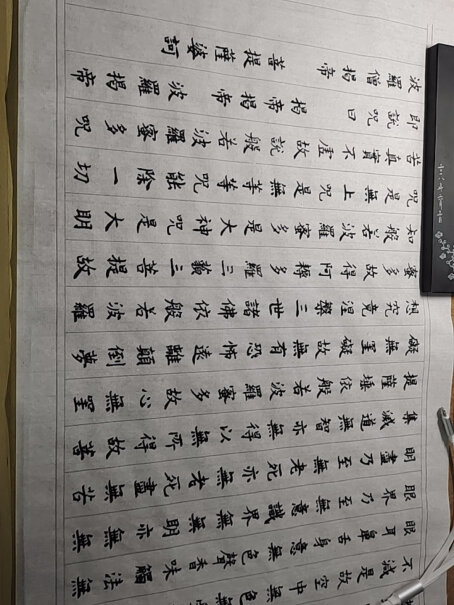 不減是故空中無色無
眼耳鼻舌身意無色聲香味觸法無
眼界乃至無意識界無無明亦無無
明盡乃至無老死亦無老死盡無苦
集滅道無智亦無得以無所得故菩
提薩埵依般若波羅蜜多故心無罣
礙無罣礙故無有恐怖遠離顛倒夢
想究竟涅槃三世諸佛依般若波羅
蜜多故得阿耨多羅三藐三菩提故
知般若波羅蜜多是大神咒是大明
咒是無上咒是無等等咒能除一切
苦真實不虛故說般若波羅蜜多咒
即說咒曰 揭帝揭帝 波羅揭帝
波羅僧揭帝 菩提薩婆訶